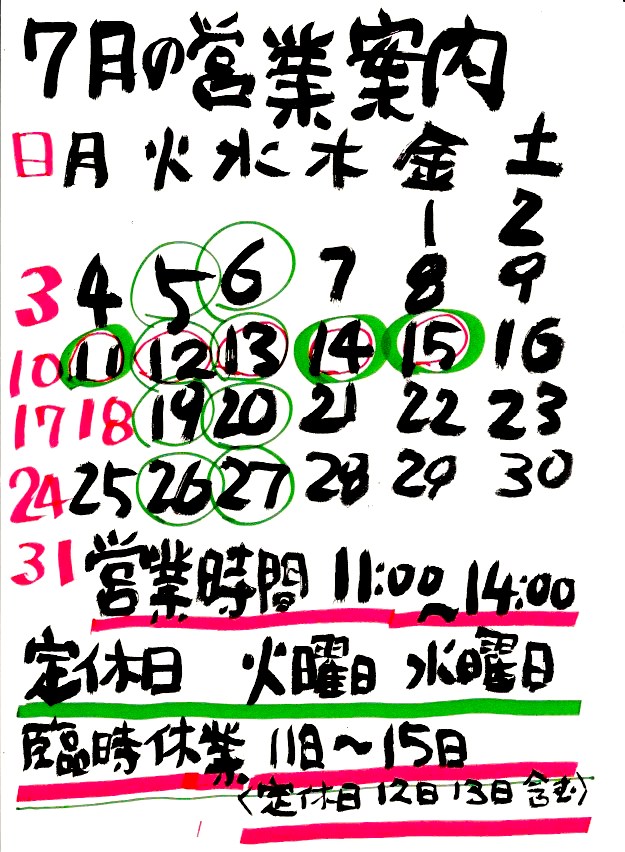 7月の営業案内
日 月 火 水 木 金 土
1 2
3 4 5 6 7 8 9
10 11 12 13 14 15 16
17 18 19 20 21 22 23
24 25 26 27 28 29 30
31
営業時間 11:00~14:00
定休日 火曜日 水曜日
臨時休業 11日~15日
〈定休日 12日 13日 含む〉